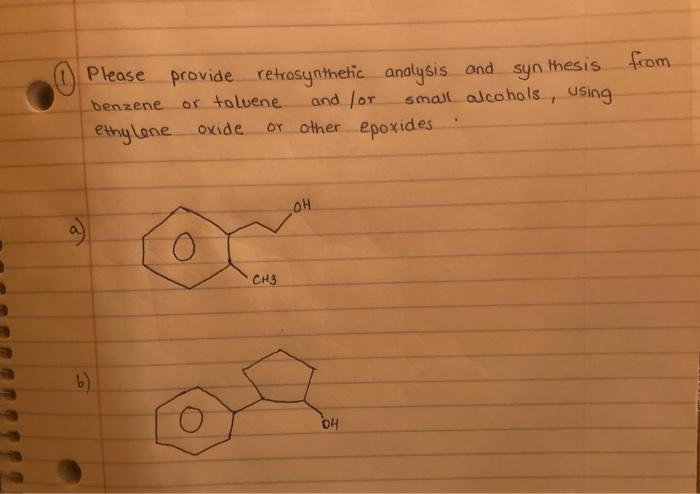 ① Please provide retrosynthetic analysis and synthesis from
benzene or toluene and/or small alcohols, using
ethylene oxide or other epoxides.
a)
OH
CH3
b)
OH